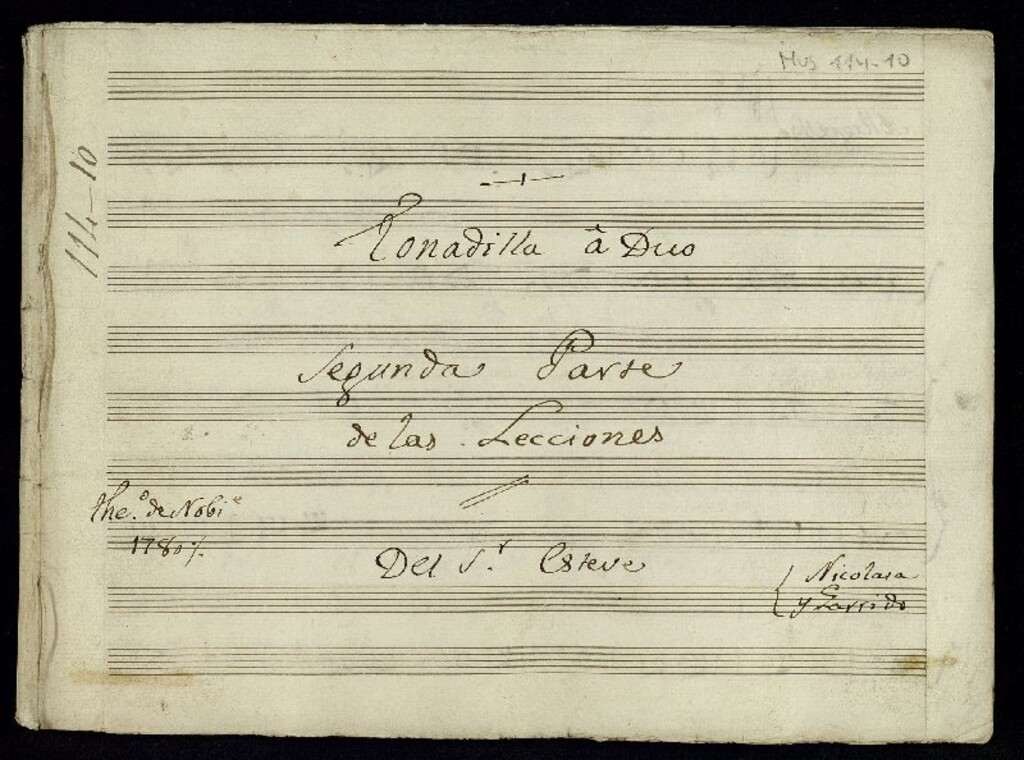 Mus 114-10
114-10
Tonadilla â Duo
Segunda Parte
de las Lecciones
the.º de Nobi.e
1780
Del S.r Esteve
Nicolasa
y Garrido